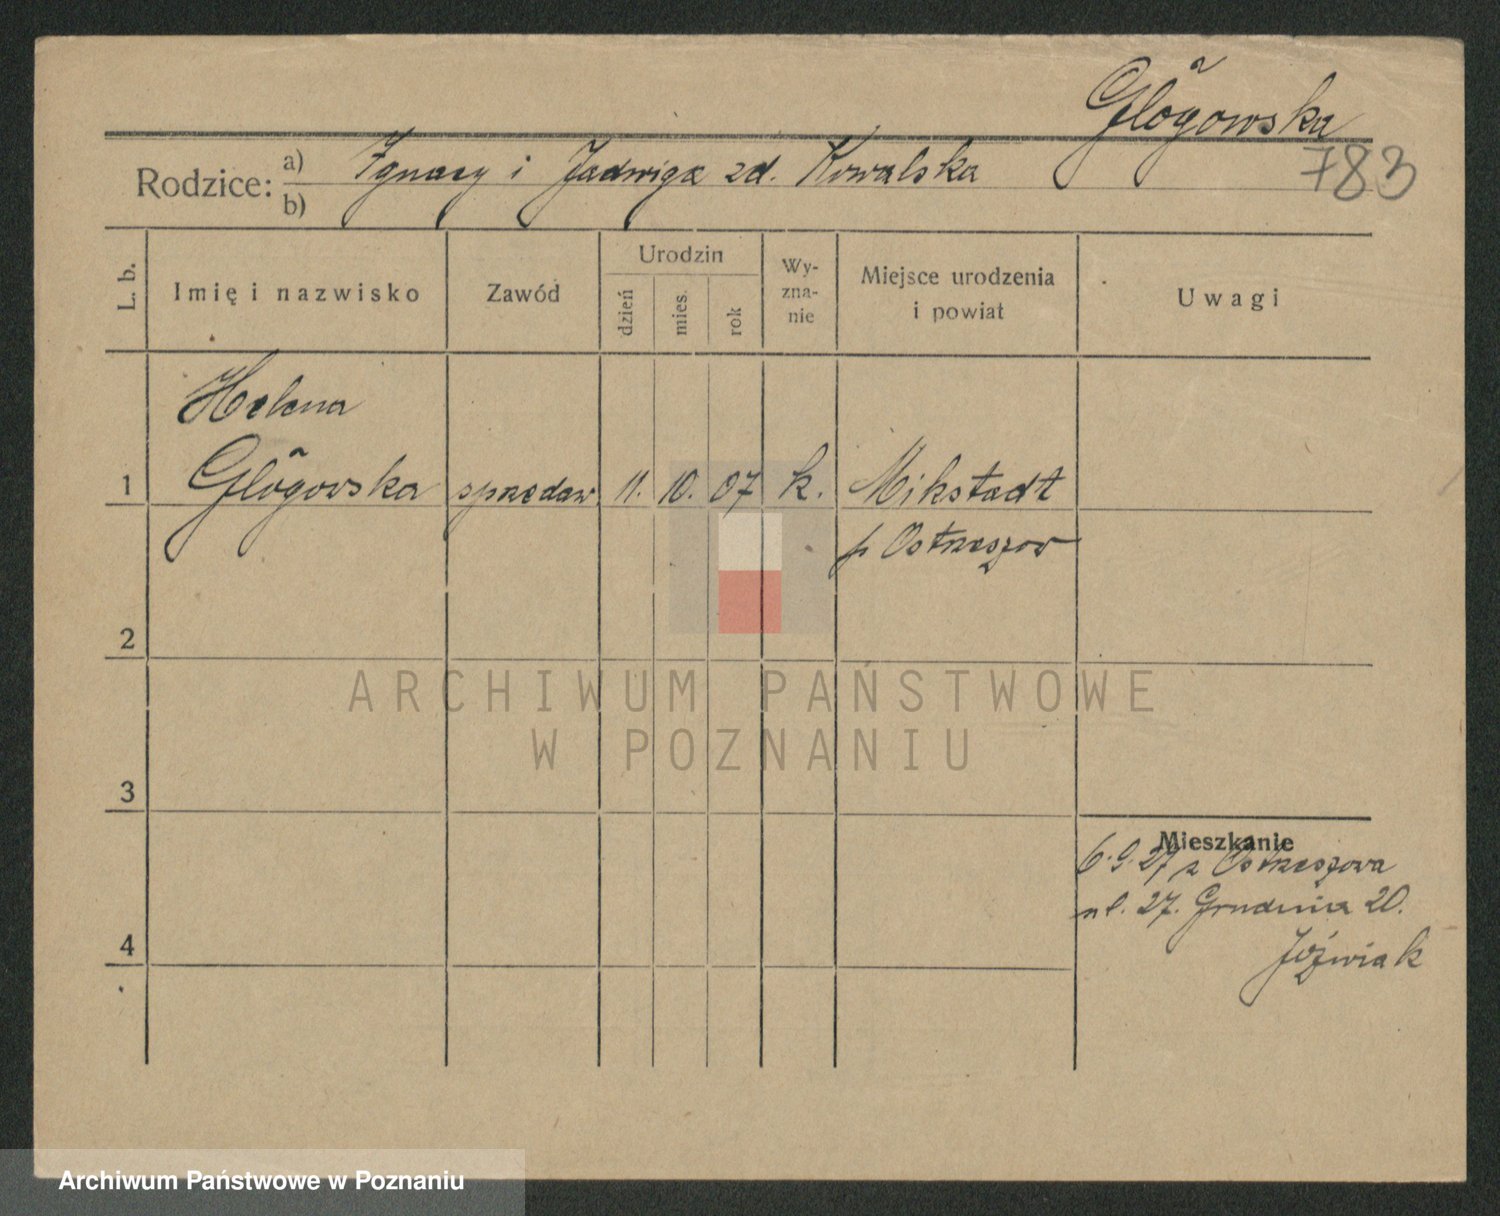 Głogowska
783
Rodzice: a) Ignacy i Jadwiga zd. Kowalska
b)
L. b.
Imię i nazwisko
Zawód
Urodzin
dzień
mies.
rok
Wy-
zna-
nie
Miejsce urodzenia
i powiat
Uwagi
Helena
1 Głogowska sprzedaw. 11. 10. 07 k. Mikstadt
p Ostrzeszow
2
ARCHIWUM PAŃSTWOWE
W POZNANIU
3
Mieszkanie
6.9.27 z Ostrzeszowa
ul. 27. Grudnia 20.
4
Jóźwiak
Archiwum Państwowe w Poznaniu